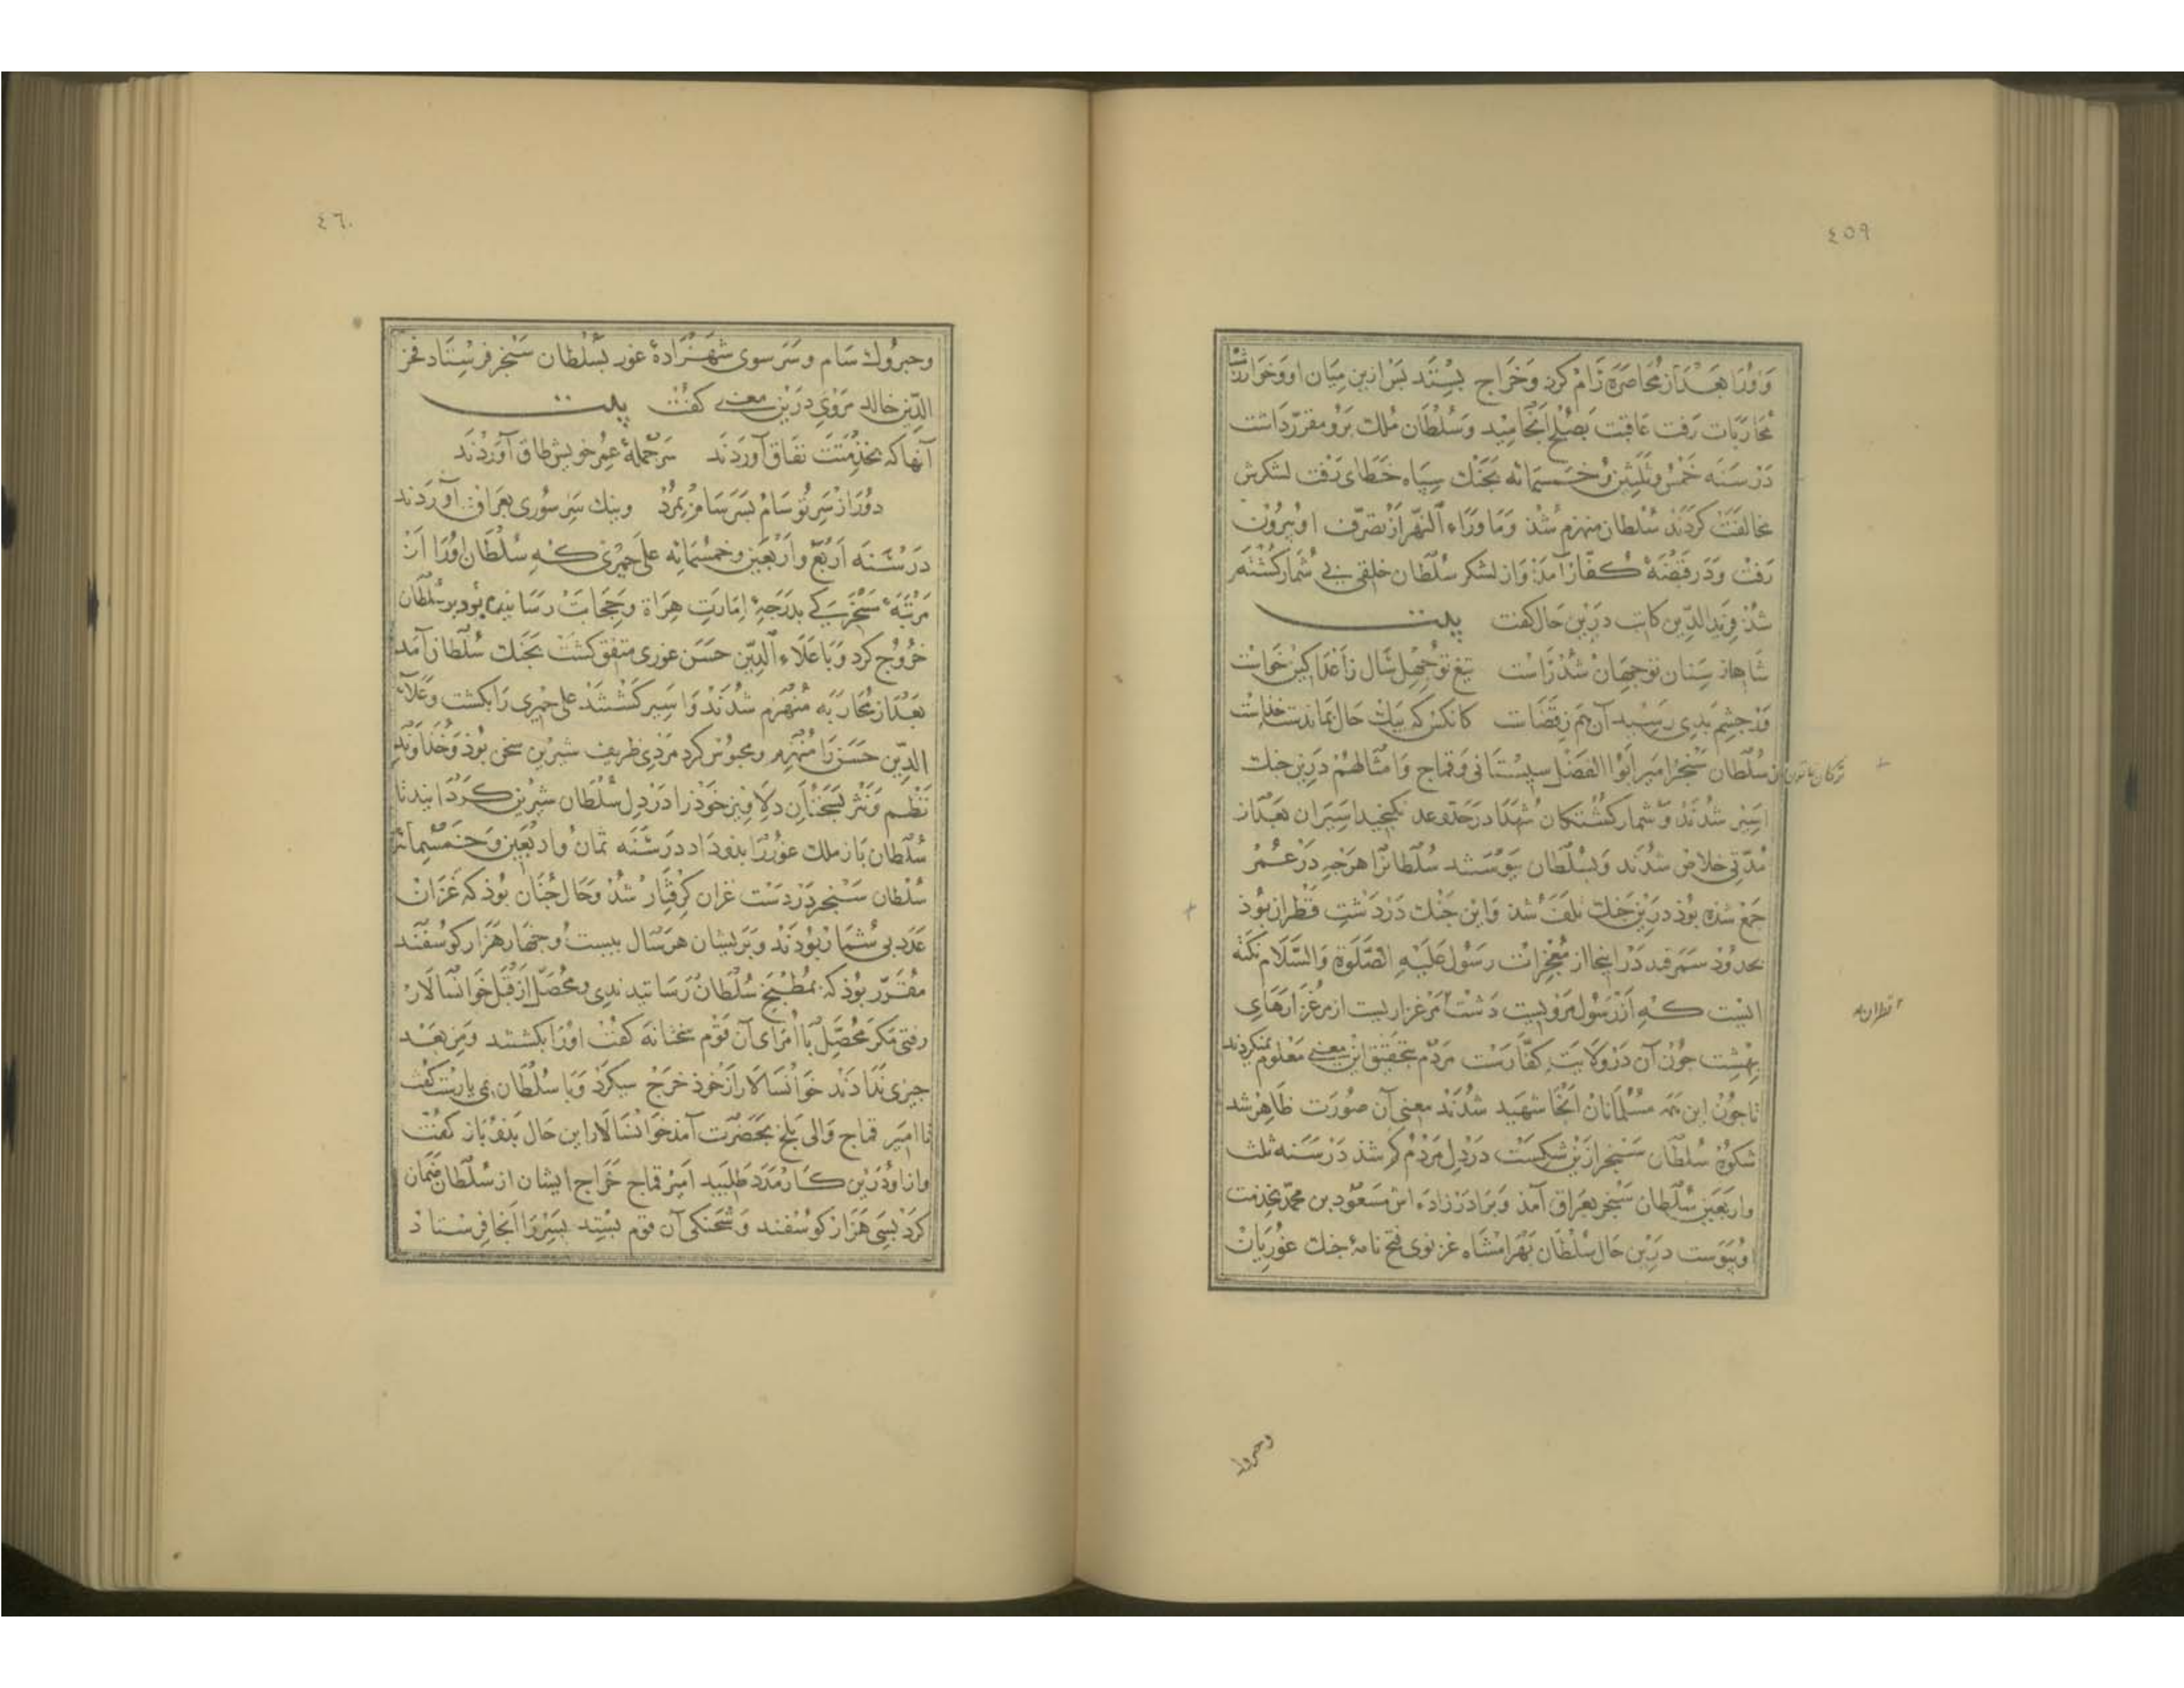 ٤٥٩
و او را بعد از محاصره رام کرد وخراج بستد بس ازین میان او وخوارزمشاه
محاربات رفت عاقبت بصلح انجامید وسلطان ملک برو مقرر داشت
در سنه خمس وثلثین وخمسمائه بجنک سپاه خطای رفت لشکرش
مخالفت کردند سلطان منهزم شذ وماوراء النهر از تصرف او بیرون
رفت ودر قبضهٔ کفار آمذ واز لشکر سلطان خلقی بی شمار کشته
شذ فرید الدین کاتب درین حال کفت بیت
شاها ز سنان تو جهان شذ راست تیغ تو چهل سال ز اعدا کین خواست
ور جشم بدی رسید آن هم ز قضاست کانکس که بیک حال بماندست خذاست
ترکان خاتون زن سلطان سنجر وامیر ابو الفضل سیستانی وقماج وامثالهم درین جنک
اسیر شدند وشمار کشتکان شهدا در حد وعد نکنجید اسیران بعد از
مدتی خلاص شدند وبسلطان پیوستند سلطانرا هرچه در عمر
جمع شده بوذ درین جنک تلف شذ واین جنک در دشت قطران بوذ
بحدود سمرقند در اینجا از معجزات رسول علیه الصلوة والسلام نکته
اینست که از رسول مرویست دشت مرغزاریست از مرغزارهای
قطران به
بهشت جون آن در ولایت کفارست مردم تحقیق این معنی معلوم نمیکردند
تا جون این همه مسلمانان آنجا شهید شدند معنی آن صورت ظاهر شد
شکوه سلطان سنجر ازین شکست در دل مردم کم شذ در سنه ثلث
واربعین سلطان سنجر بعراق آمذ وبرادرزاده اش مسعود بن محمد بخذمت
او پیوست درین حال سلطان بهرامشاه غزنوی فتح نامهٔ جنک غوریان
وحبروک
٤٦٠
وحبروک سام وسر سوی شهزادهٔ غور بسلطان سنجر فرستاد فخر
الدین خالد مروی درین معنی کفت بیت
آنها که بخذمتت نفاق آوردند سر جملهٔ عمر خویش طاق آوردند
دور از سر تو سام بسرسام بمرد وینک سر سوری بعراق آوردند
در سنه اربع واربعین وخمسمائه علی جیری که سلطان او را از
مرتبهٔ سخرکی بدرجهٔ امارت هراة وحجابت رسانیده بود بر سلطان
خروج کرد وبا علاء الدین حسن غوری متفق کشت بجنک سلطان آمد
بعد از محاربه منهزم شدند واسیر کشتند علی جیری را بکشت وعلاء
الدین حسن را منهزم ومحبوس کرد مردی ظریف شیرین سخن بوذ وخداوند
نظم ونثر بسخنان دلاویز خوذ را در دل سلطان شیرین کردانید تا
سلطان باز ملک غور را بذو داد در سنه ثمان واربعین وخمسمائه
سلطان سنجر در دست غزان کرفتار شذ وحال جنان بوذ که غزان
عدد بی شمار بوذند وبر ایشان هر سال بیست وجهار هزار کوسفند
مقرر بوذ که بمطبخ سلطان رسانیدندی ومحصل از قبل خوانسالار
رفتی مکر محصل با امرای آن قوم سخنانه کفت او را بکشتند ومن بعد
جیزی ندادند خوانسالار از خوذ خرج میکرد وبا سلطان نمی یارست کفت
تا امیر قماج والی بلخ بحضرت آمذ خوانسالار این حال بذو باز کفت
واز او درین کار مدد طلبید امیر قماج خراج ایشان از سلطان ضمان
کرد بسی هزار کوسفند وشحنکی آن قوم بستد پسر را آنجا فرستاد